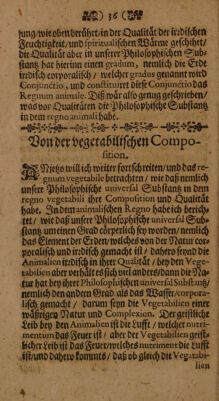 36
jung/wie oben berührt/in der Qualität der irdischen
Feuchtigkeit/ und spiritualischen Wärme geschihet/
die Qualität aber in unser Philosophischen Sub-
stantz hat hierinn einen gradum, nemlich die Erde
irdisch corporalisch/ welcher gradus genannt wird
Conjunctio, und constituiret diese Conjunctio das
Regnum animale. Diß wär also genug geschrieben/
was vor Qualitäten die Philosophische Substantz
in dem regno animali habe.
Von der vegetabilischen Compo-
sition.
ANjetzo will ich weiter fortschreiten/ und das re-
gnum vegetabile betrachten/ wie daß nemlich
unsere Philosophische universal Substantz in dem
regno vegetabili ihre Composition und Qualität
habe. In dem animalischen Regno habe ich berich-
tet/ wie daß unser Philosophische universal Sub-
stantz um einen Grad cörperlich sey worden/ nemlich
das Element der Erden/welches von der Natur cor-
poralisch und irdisch gemacht ist/ dahero seynd die
Animalien irdisch in ihrer Qualität/ bey den Vege-
tabilien aber verhält es sich viel anders/dann die Na-
tur hat bey ihrer Philosophischen universal Substantz/
nemlich den andern Grad als das Wasser/corpora-
lisch gemacht/ darum seyn die Vegetabilien einer
wäßrigen Natur und Complexion. Der geistliche
Leib bey den Animalien ist die Lufft/ welcher nutri-
mentum das Feuer ist/ aber der Vegetabilien geist-
licher Leib ist das Feuer/welches nutriment die Lufft
ist/und dahero kommts/ daß ob gleich die Vegatabi-
lien